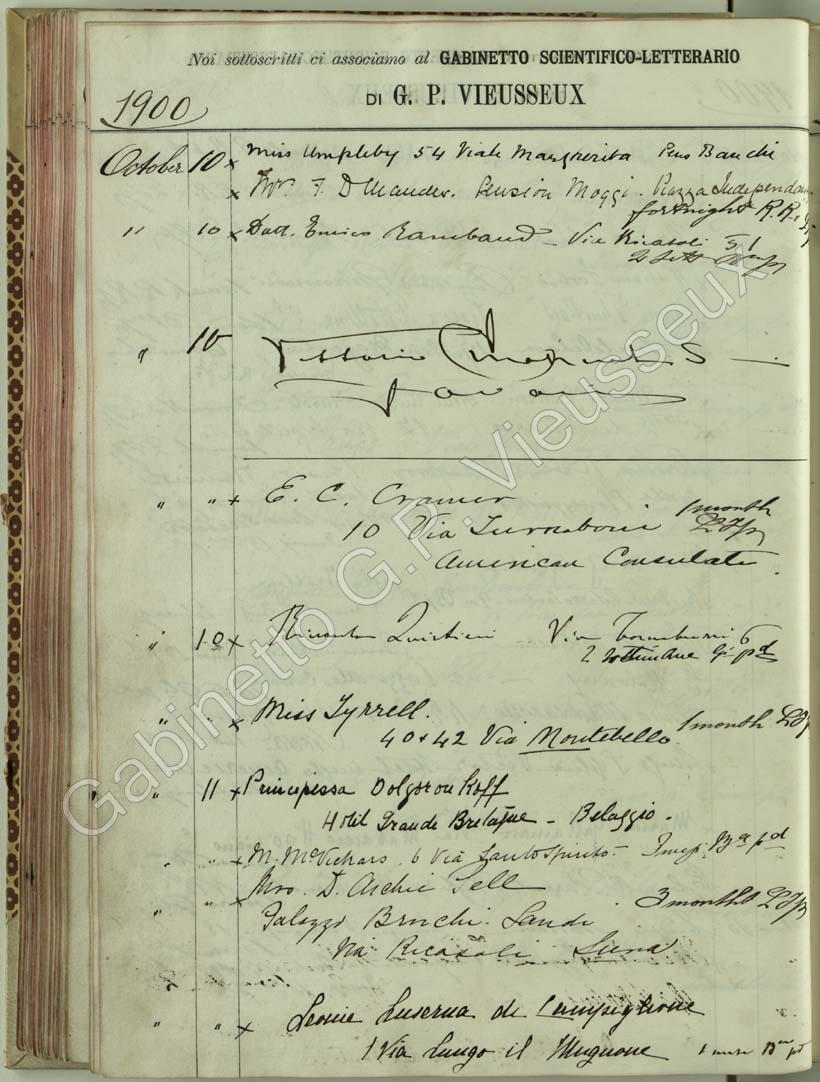 Noi sottoscritti ci associamo al GABINETTO SCIENTIFICO-LETTERARIO
DI G. P. VIEUSSEUX
1900
October 10 x Miss Umpleby 54 Viale Margherita Pens Banchi
x Pension Moggi. Piazza Independenza
fortnight R. R.
" 10 x Dott. Enrico Rambaud - Via Ricasoli 51
" 10 Vittorio
" " x E. C. Cramer
10 Via Turnaboni 1 month
American Consulate.
" 10 x Via Tornabuoni 6
2 settimane pd
" " x Miss Tyrrell.
40 + 42 Via Montebello. 1 month
" 11 x Principessa Dolgoroukoff
Hotil Grande Bretagne - Belaggio.
" " x M. McVickars 6 Via Santo Spirito - pd
" " x Mrs. D. Archie Pell
Palazzo Sandi 3 months
Via Ricasoli Siena
" " x Leonie Luserna de Campiglione
1 Via Lungo il Mugnone 1 mese
Gabinetto G. P. Vieusseux